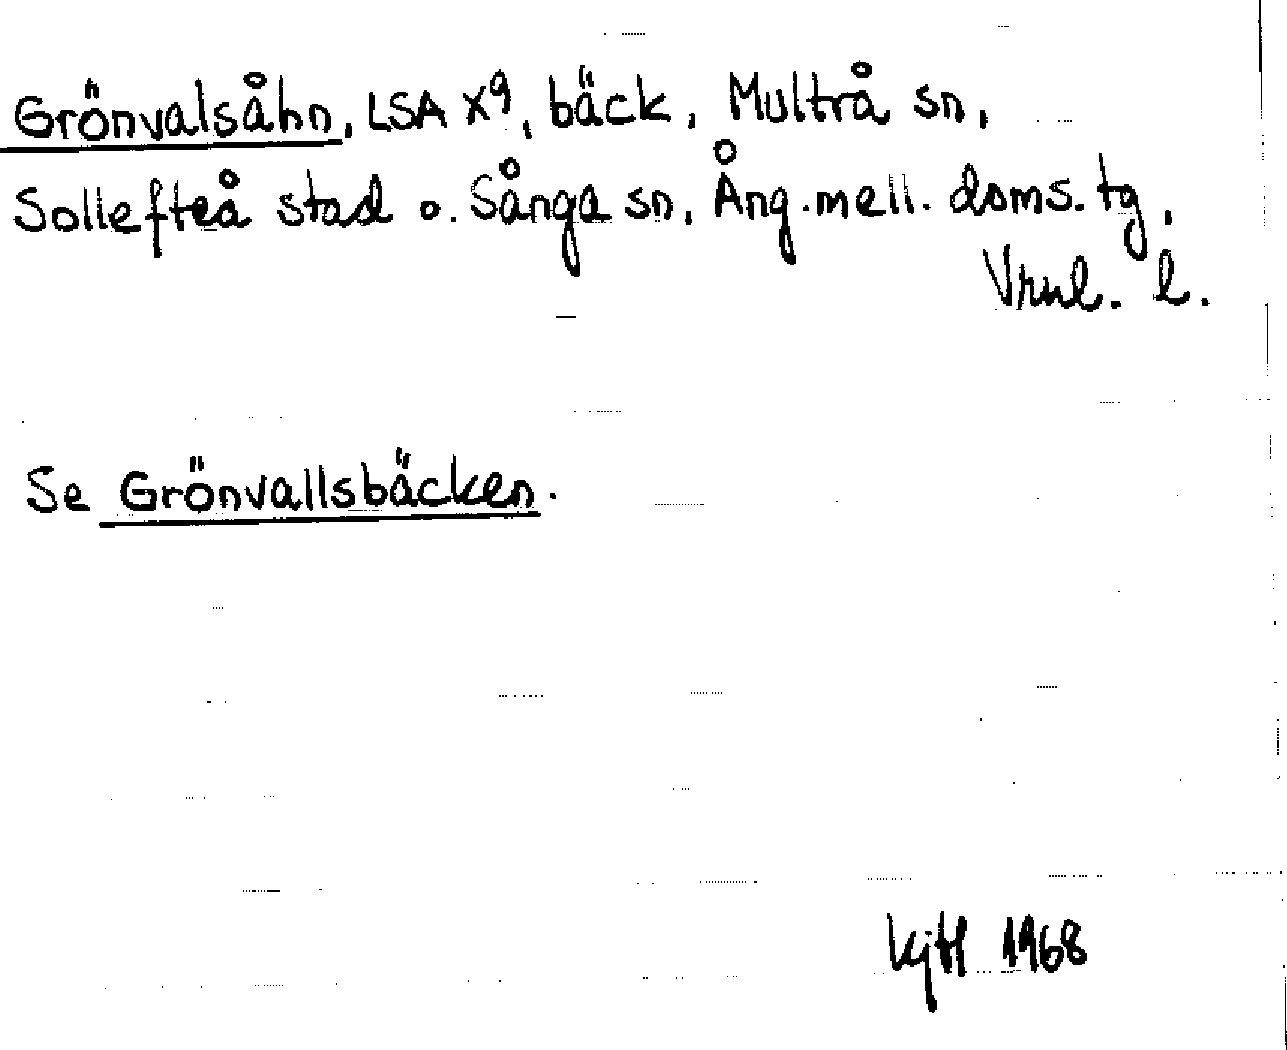 Grönvalsåhn, LSA X9, bäck, Multrå sn,
Sollefteå stad o. Sånga sn, Ång. mell. doms. tg,
l.
Se Grönvallsbäcken.
1968